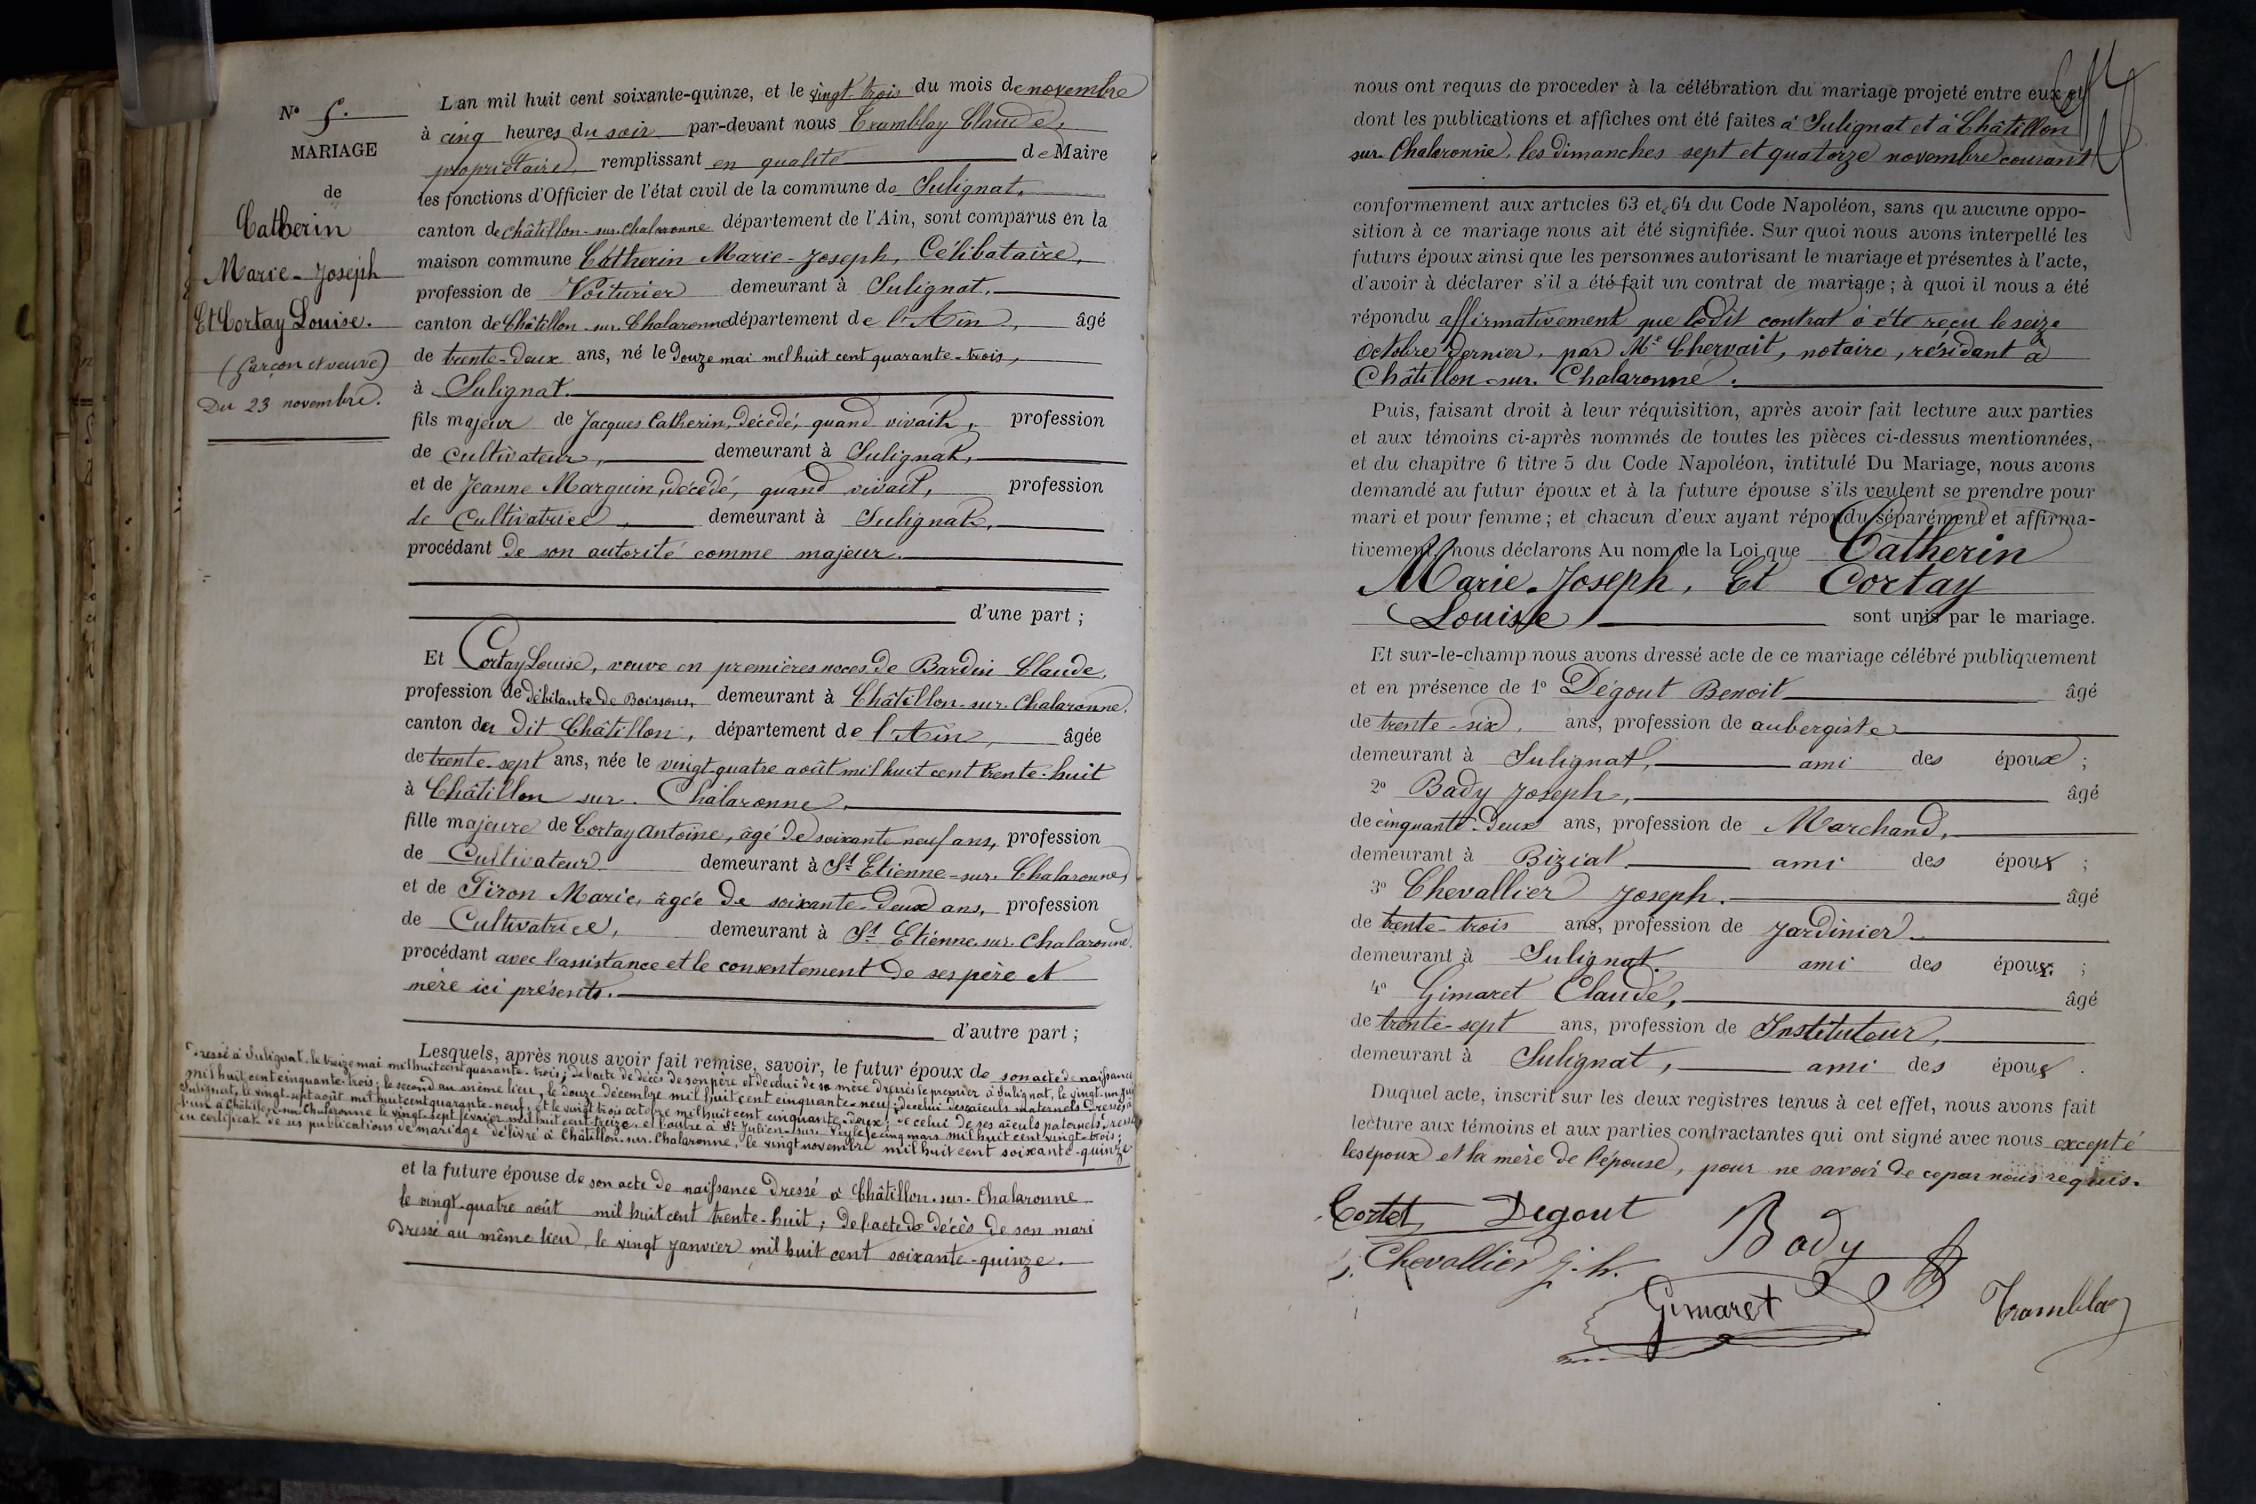 N° 5.
MARIAGE
de
Catherin
Marie-Joseph
Et Cortay Louise.
(garçon et veuve)
Du 23 novembre.
L'an mil huit cent soixante-quinze, et le vingt-trois du mois de novembre
à cinq heures du soir par-devant nous Tramblay Claude,
propriétaire, remplissant en qualité de Maire
les fonctions d'Officier de l'état civil de la commune de Sulignat,
canton de Châtillon-sur-Chalaronne département de l'Ain, sont comparus en la
maison commune Catherin Marie-Joseph, Célibataire,
profession de Voiturier demeurant à Sulignat.
canton de Châtillon-sur-Chalaronne département de l'Ain, âgé
de trente-deux ans, né le Douze mai mil huit cent quarante-trois,
à Sulignat.
fils majeur de Jacques Catherin, décédé, quand vivait, profession
de cultivateur, demeurant à Sulignat,
et de Jeanne Marguin, décédé, quand vivait, profession
de Cultivatrice, demeurant à Sulignat,
procédant de son autorité comme majeur.
d'une part ;
Et Cortay Louise, veuve en premières noces de Bardin Claude,
profession de débitante de Boissons, demeurant à Châtillon-sur-Chalaronne,
canton du dit Châtillon, département de l'Ain, âgée
de trente-sept ans, née le vingt-quatre août mil huit cent trente-huit
à Châtillon sur. Chalaronne.
fille majeure de Cortay Antoine, âgé de soixante neuf ans, profession
de Cultivateur demeurant à St Etienne-sur-Chalaronne,
et de Tiron Marie, âgée de soixante-deux ans, profession
de Cultivatrice, demeurant à St Etienne sur Chalaronne.
procédant avec l'assistance et le consentement de ses père et
mère ici présents.
d'autre part ;
Lesquels, après nous avoir fait remise, savoir, le futur époux de son acte de naissance
Dressé à Sulignat, le treize mai mil huit cent quarante-trois; de l'acte de décès de son père et de celui de sa mère dressés le premier à Sulignat, le vingt-un
mil huit cent cinquante-trois; le second au même lieu, le douze décembre mil huit cent cinquante-neuf; de celui des aïeuls maternels dressés à
Sulignat, le vingt-sept août mil huit cent quarante-neuf; et le vingt trois octobre mil huit cent cinquante-deux; de celui de ses aïeuls paternels,
l'un à Châtillon-sur-Chalaronne le vingt-sept février mil huit cent treize, et l'autre à St Julien-sur-Veyle le cinq mars mil huit cent vingt-trois;
un certificat de ses publications de mariage délivré à Châtillon-sur-Chalaronne, le vingt novembre mil huit cent soixante-quinze
et la future épouse de son acte de naissance Dressé à Châtillon-sur-Chalaronne
le vingt-quatre août mil huit cent trente-huit; de l'acte de décès de son mari
Dressé au même lieu, le vingt janvier mil huit cent soixante-quinze.
nous ont requis de procéder à la célébration du mariage projeté entre eux et
dont les publications et affiches ont été faites à Sulignat et à Châtillon
sur-Chalaronne, les dimanches sept et quatorze novembre courant
conformément aux articles 63 et 64 du Code Napoléon, sans qu'aucune oppo-
sition à ce mariage nous ait été signifiée. Sur quoi nous avons interpellé les
futurs époux ainsi que les personnes autorisant le mariage et présentes à l'acte,
d'avoir à déclarer s'il a été fait un contrat de mariage ; à quoi il nous a été
répondu affirmativement que ledit contrat a été reçu le seize
Octobre dernier, par Me Chervait, notaire, résidant à
Châtillon-sur-Chalaronne.
Puis, faisant droit à leur réquisition, après avoir fait lecture aux parties
et aux témoins ci-après nommés de toutes les pièces ci-dessus mentionnées,
et du chapitre 6 titre 5 du Code Napoléon, intitulé Du Mariage, nous avons
demandé au futur époux et à la future épouse s'ils veulent se prendre pour
mari et pour femme ; et chacun d'eux ayant répondu séparément et affirma-
tivement, nous déclarons Au nom de la Loi que Catherin
Marie-Joseph, Et Cortay
Louise sont unis par le mariage.
Et sur-le-champ nous avons dressé acte de ce mariage célébré publiquement
et en présence de 1° Dégout Benoit âgé
de trente-six, ans, profession de aubergiste
demeurant à Sulignat, ami des époux ;
2° Bady Joseph, âgé
de cinquante-deux ans, profession de Marchand,
demeurant à Biziat. ami des époux ;
3° Chevallier Joseph. âgé
de trente-trois ans, profession de Jardinier.
demeurant à Sulignat. ami des époux. ;
4° Gimaret Claude, âgé
de trente-sept ans, profession de Instituteur,
demeurant à Sulignat, ami des époux .
Duquel acte, inscrit sur les deux registres tenus à cet effet, nous avons fait
lecture aux témoins et aux parties contractantes qui ont signé avec nous excepté
les époux et la mère de l'épouse, pour ne savoir de ce par nous requis.
Cortet Degout
Bady
Chevallier J.h.
Gimaret
Tramblay